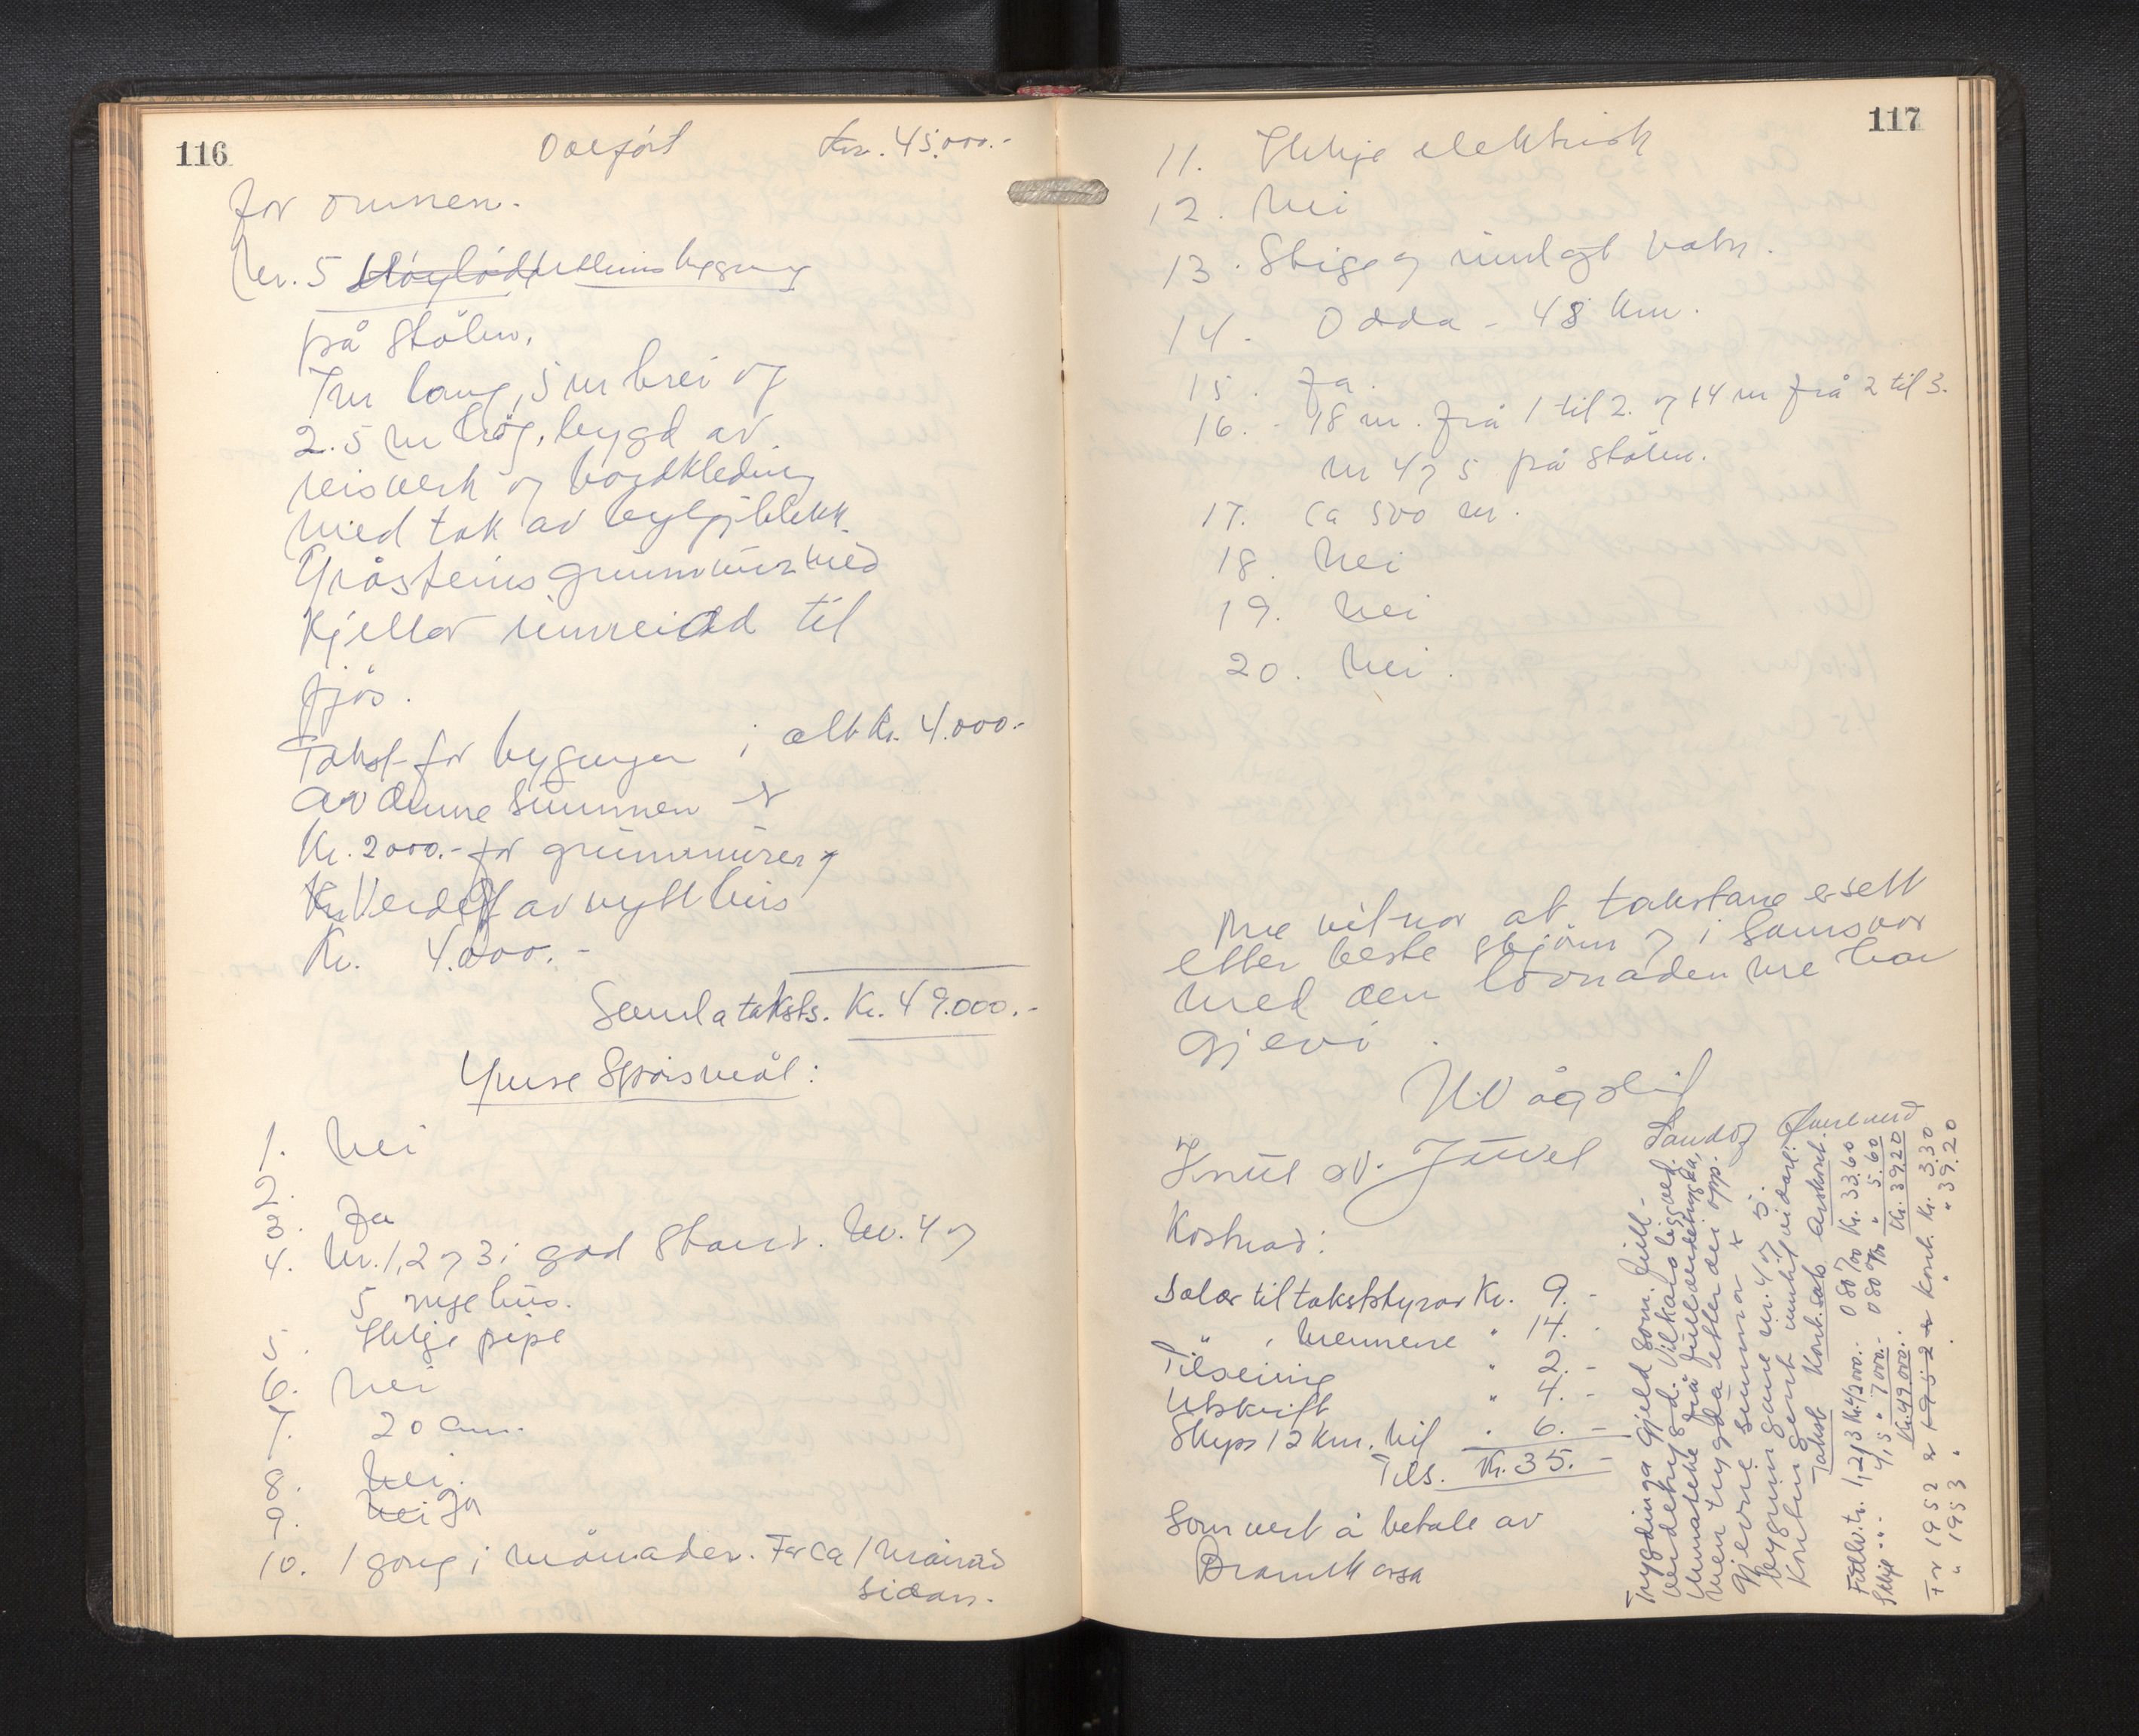 116
Overført Kr. 45.000.-
for omnen.
Nr. 5 Uthusbygning
på stølen,
7 m lang, 5 m brei og
2.5 m høg, bygd av
reisverk og bordkleding
med tak av bylgjeblekk.
Gråsteins grunnmur med
kjellar innreidd til
fjøs.
Takst for bygningen i alt Kr. 4.000.-
av denne summen er
Kr. 2000.- for grunnmuren og
Verdet av nytt hus
Kr. 4.000.-
Samla taksts. Kr. 49.000.-
Ymse Spørsmål:
1. Nei
2.
3. Ja
4. Nr. 1, 2 og 3 i god stand. Nr. 4 og
5 nye hus.
5. Ikkje pipe
6. Nei
7. 20 cm.
8. Nei.
9. Nei Ja
10. 1 gong i månaden. For ca 1 månad
sidan.
117
11. Ikkje elektrisk
12. Nei
13. Stige og rindgt vatn.
14. Odda - 48 km.
15. Ja.
16. - 18 m. frå 1 til 2. og 14 m frå 2 til 3.
nr 4 og 5 på stølen.
17. Ca 500 m.
18. Nei
19. Nei
20. Nei.
Me vitnar at takstane er sett
etter beste skjønn og i samsvar
med den lovnaden me har
gjevi.
Knut Juvel
Kostnad:
Salær til takststyrar Kr. 9.-
" " mennene " 14.-
Tilseing " 2.-
Utskrift " 4.-
Skyss 12 km. bil " 6.-
Tils. Kr. 35.-
Som vert å betale av
Brannkassa
Trygdinga gjeld som full-
verdetrygd. Vilkåra
men trygda etter dei opp-
gjevne summar
bygningane nr. 4 og 5.
Kontingent vidare:
Takst Kont.sats Årskont.
Fullv.tr. 1, 2 og 3 Kr. 42000.- 0 80 ‰ Kr. 33.60
Ikkje " 4, 5 " 7000.- 0 80 ‰ " 5.60
Kr. 49.000.- Kr. 39.20
For 1952 er kont. Kr. 3.30
" 1953 " " " 39.20